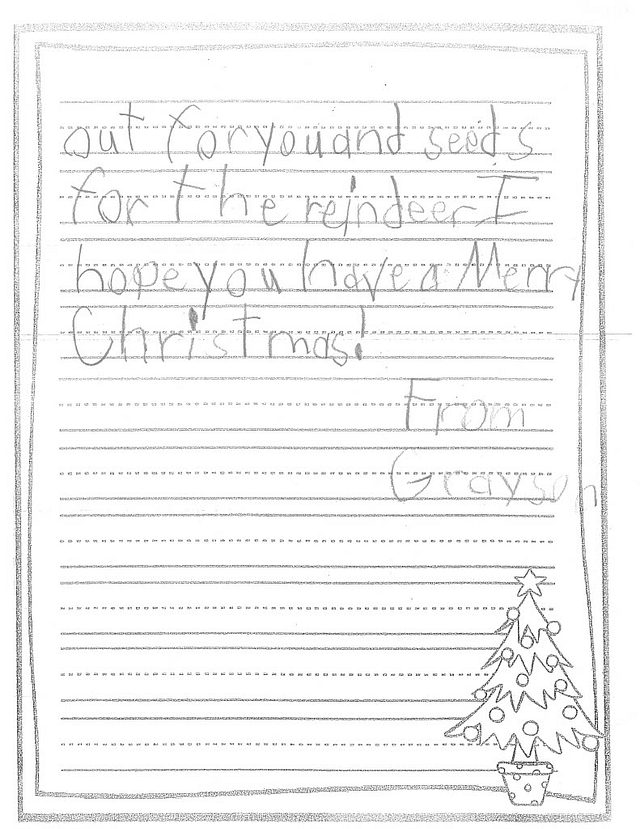 out for you and seeds
for the reindeer I
hope you have a Merry
Christmas!
From
Grayson